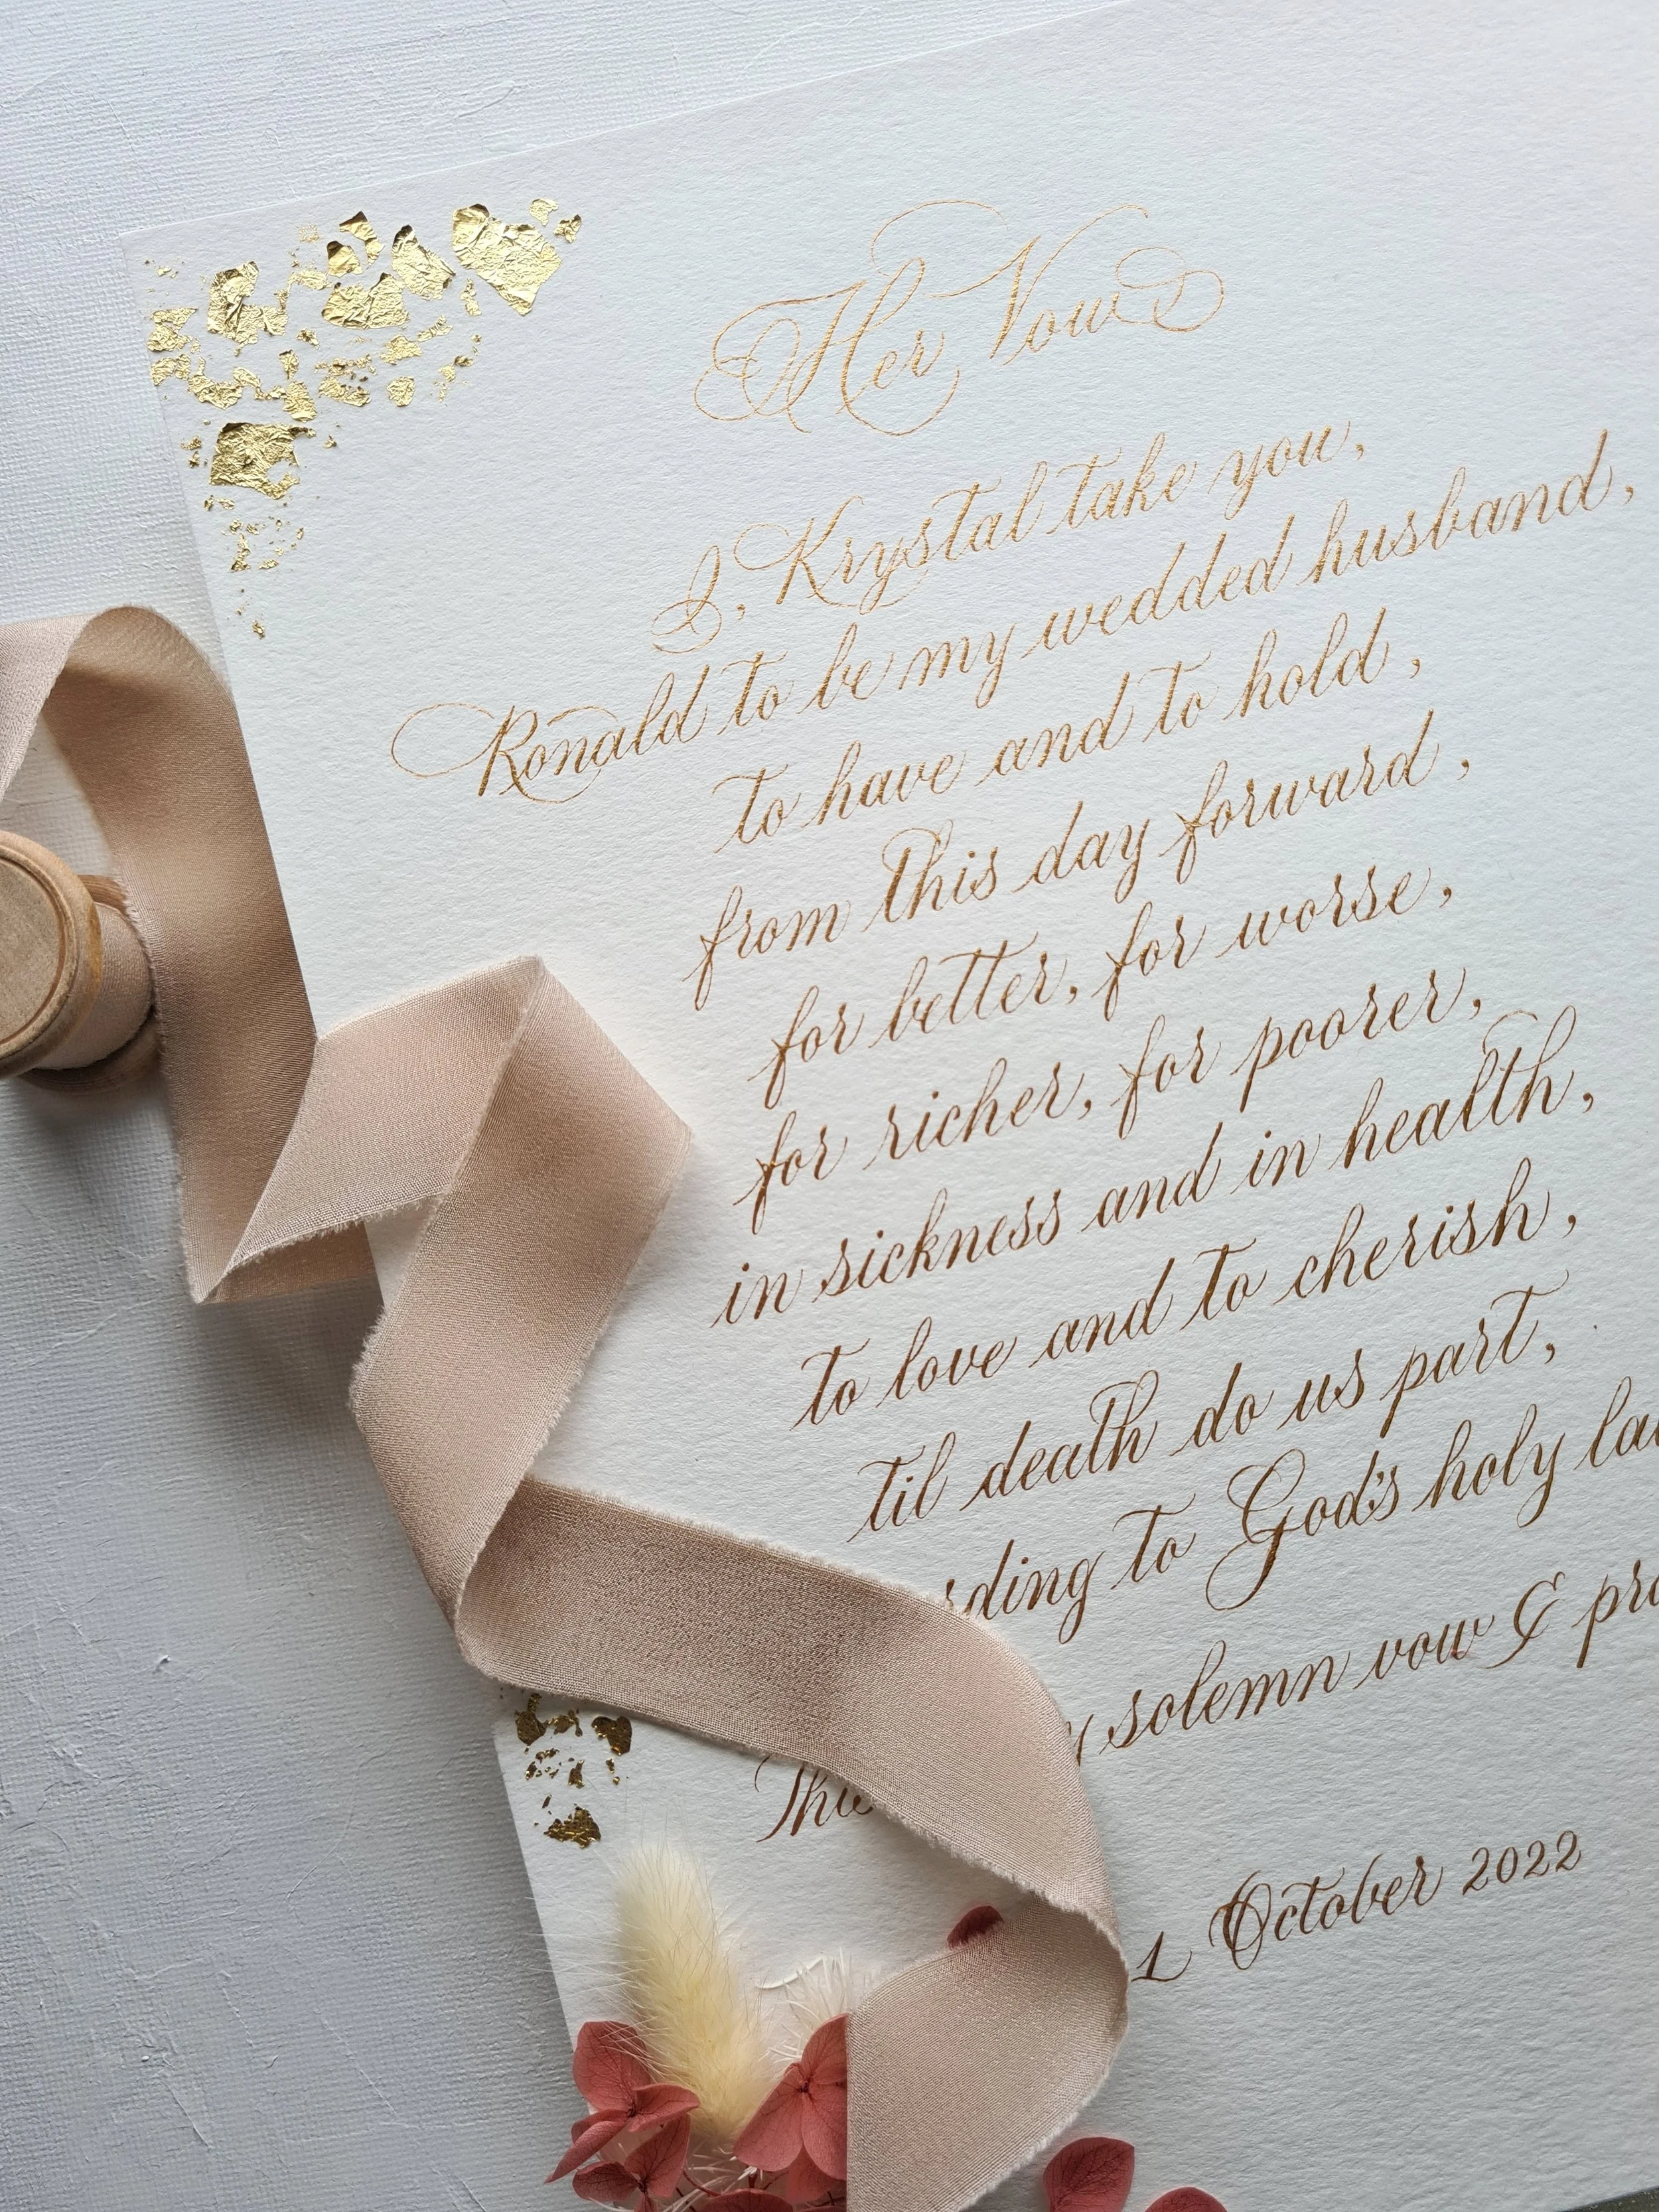 Her Vow
I, Krystal take you,
Ronald to be my wedded husband,
to have and to hold,
from this day forward,
for better, for worse,
for richer, for poorer,
in sickness and in health,
to love and to cherish,
til death do us part,
rding to God's holy la
This solemn vow & pro
1 October 2022